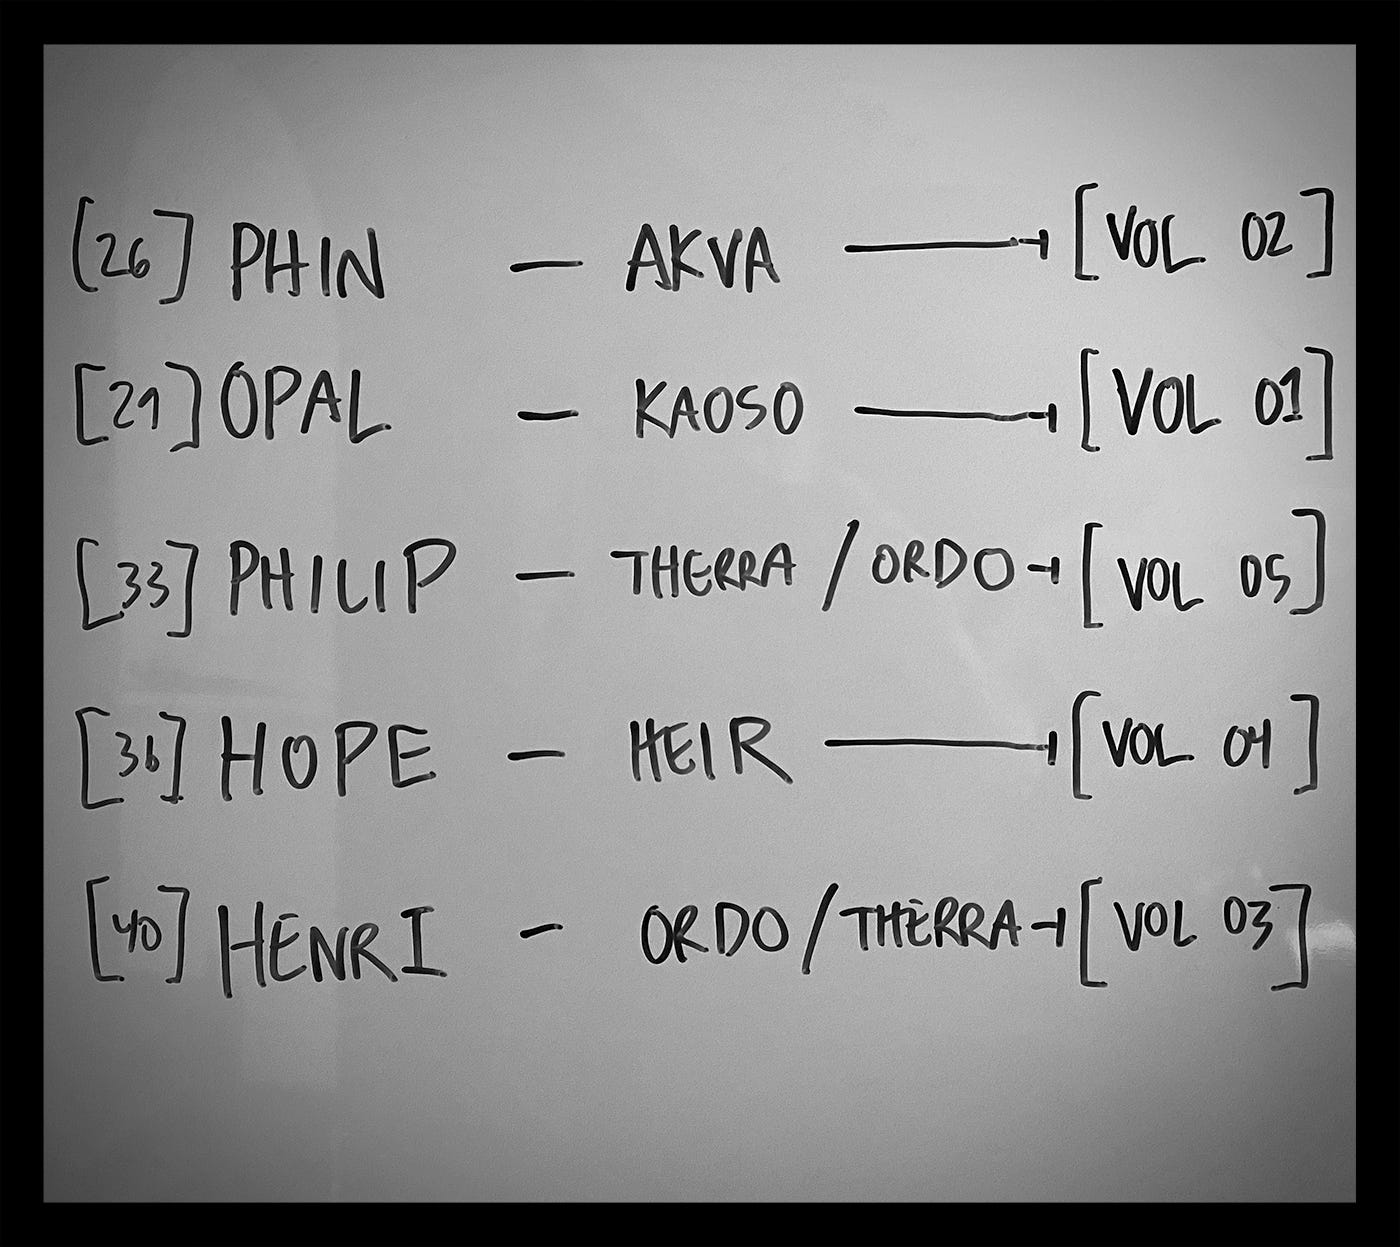 [26] PHIN — AKVA —⊣ [VOL 02]
[29] OPAL — KAOSO —⊣ [VOL 01]
[33] PHILIP — THERRA / ORDO ⊣ [VOL 05]
[36] HOPE — HEIR —⊣ [VOL 04]
[40] HENRI - ORDO / THERRA ⊣ [VOL 03]